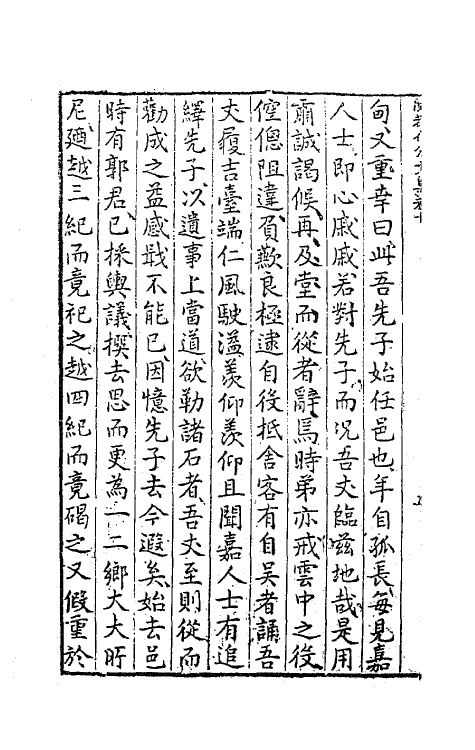 甸又重幸曰此吾先子始任邑也年自孤長每見嘉
人士即心戚戚若對先子而况吾丈臨兹地哉是用
肅誠謁候再及堂而從者辭焉時弟亦戒雲中之役
倥偬阻違負歉良極逮自役抵舍客有自吴者誦吾
丈履吉臺端仁風駛溢羡仰羡仰且聞嘉人士有追
繹先子以遺事上當道欲勒諸石者吾丈至則從而
勸成之益感戢不能已因憶先子去今遐矣始去邑
時有郭君已採輿議撰去思而更為一二鄉大夫盱
尼迺越三紀而竟祀之越四紀而竟碣之又假重於